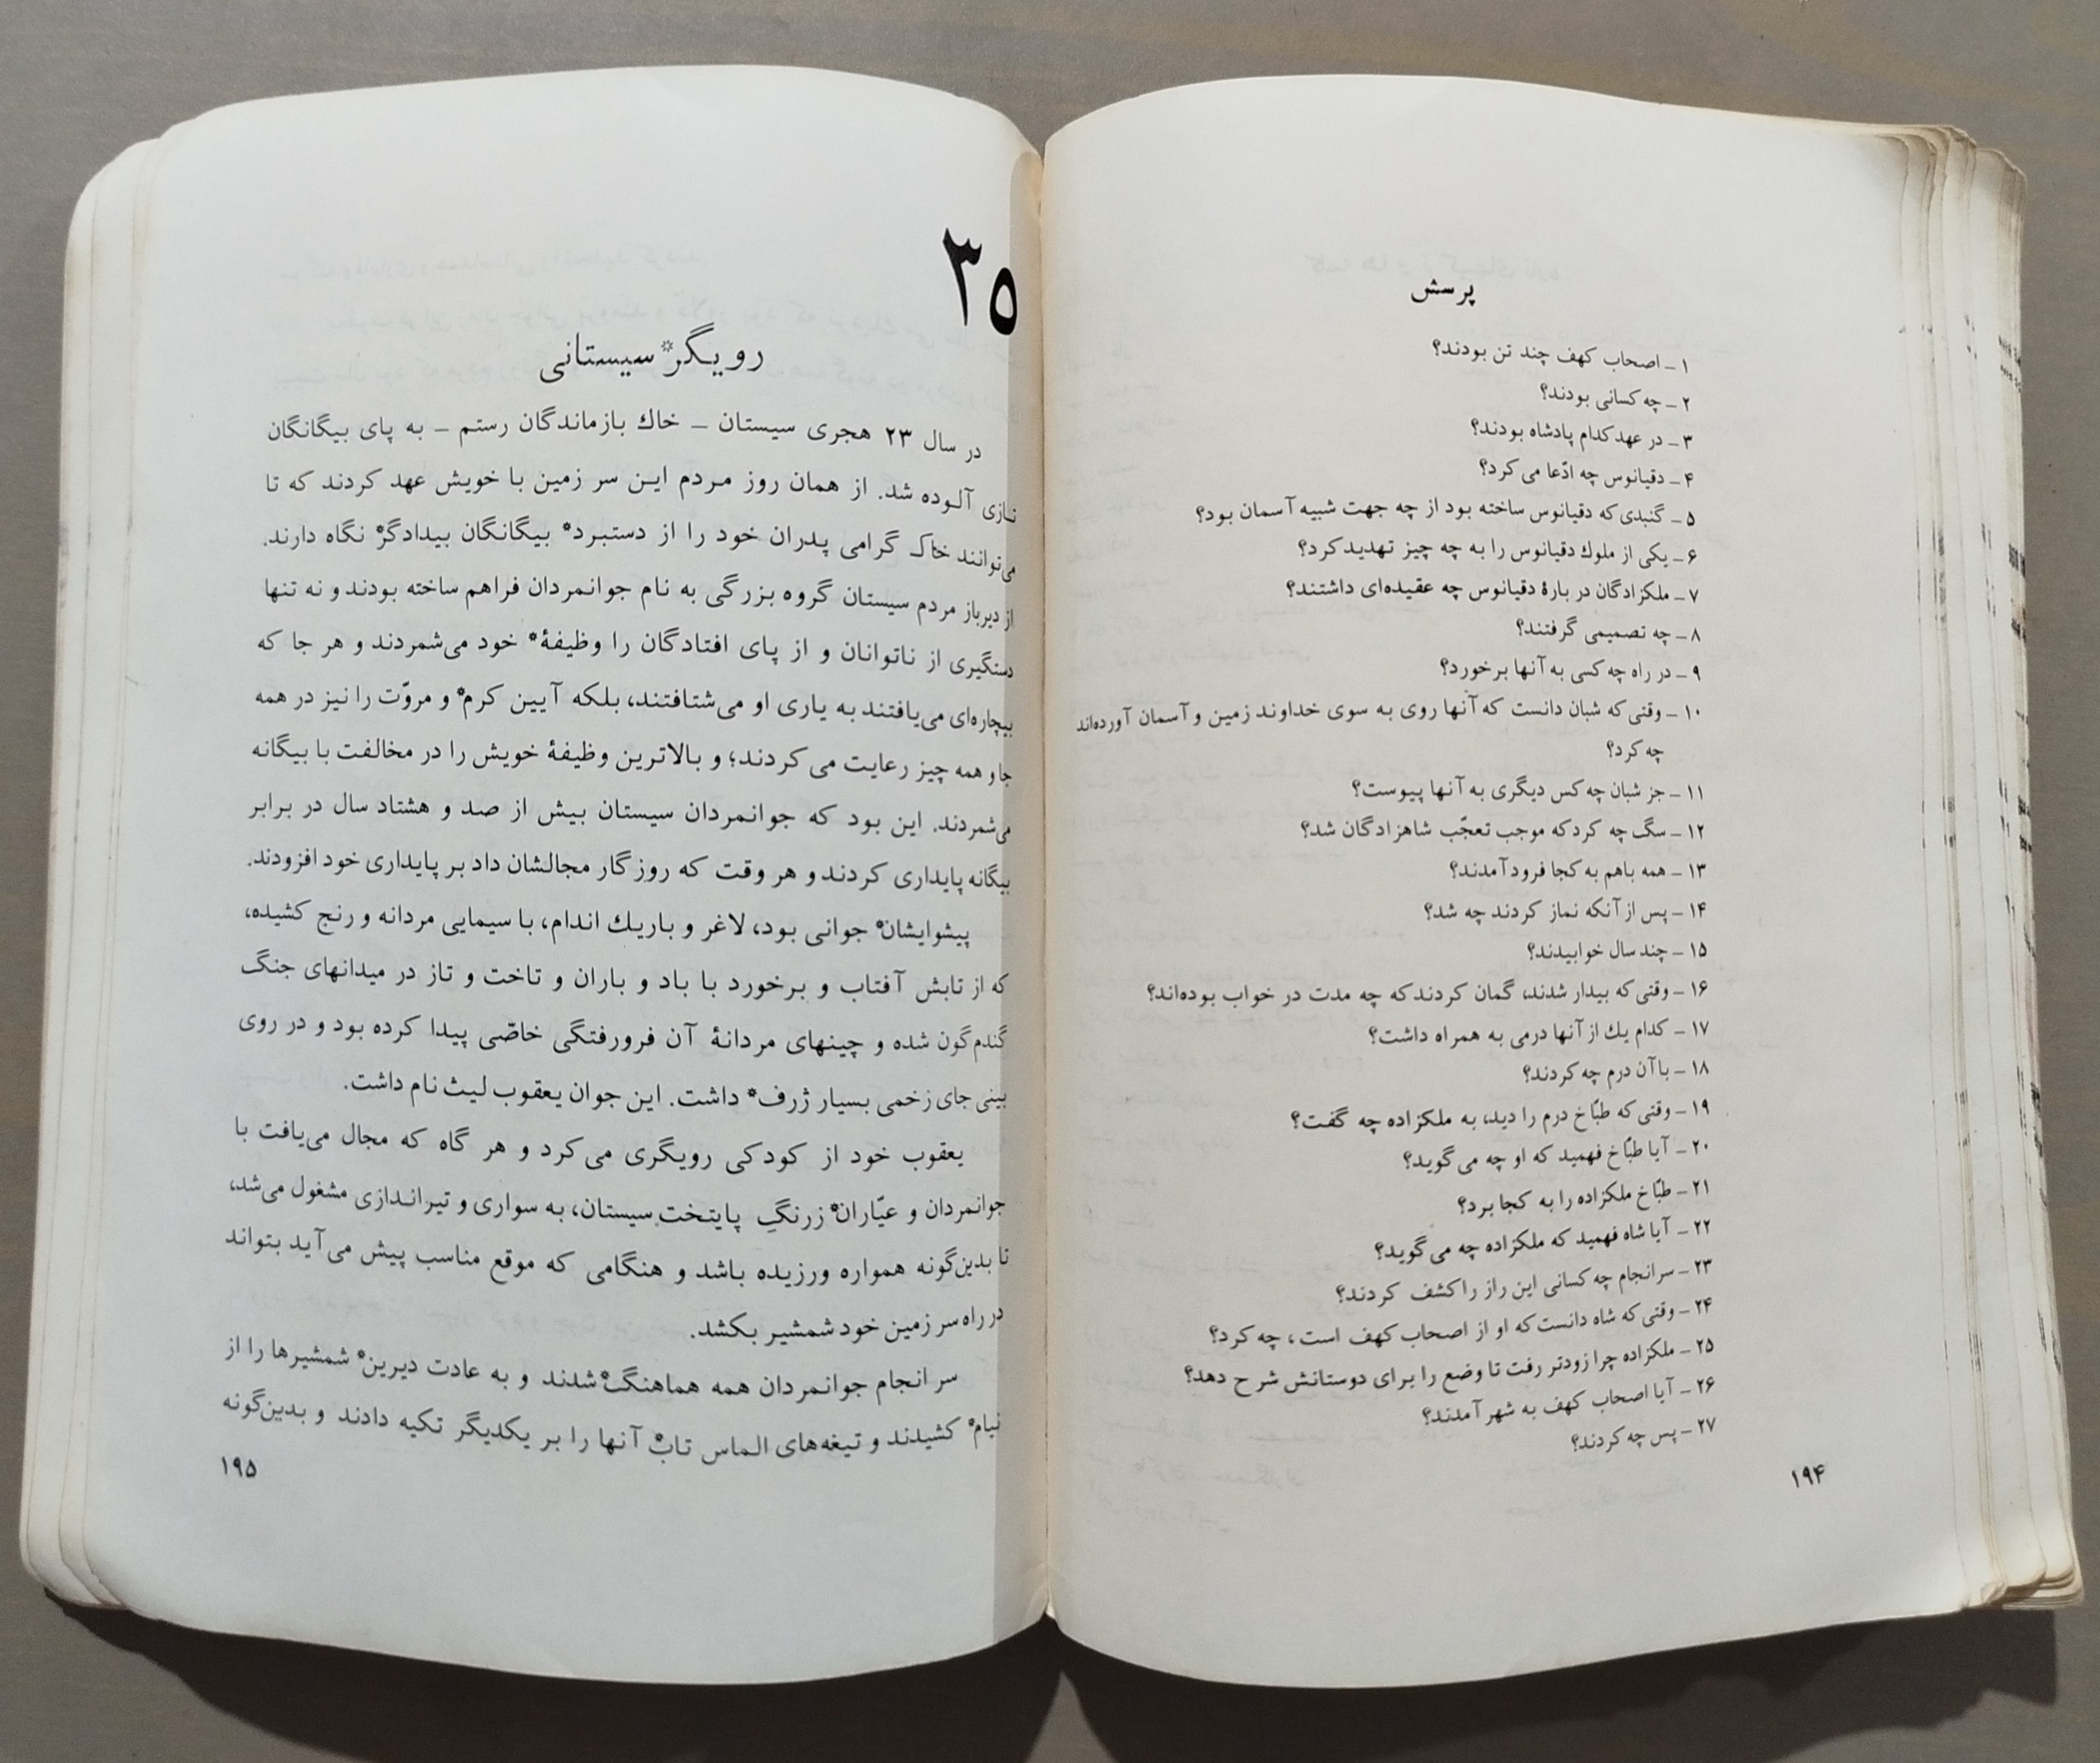 پرسش
۱ ـ اصحاب کهف چند تن بودند؟
۲ ـ چه کسانی بودند؟
۳ ـ در عهد کدام پادشاه بودند؟
۴ ـ دقیانوس چه ادّعا می کرد؟
۵ ـ گنبدی که دقیانوس ساخته بود از چه جهت شبیه آسمان بود؟
۶ ـ یکی از ملوك دقیانوس را به چه چیز تهدید کرد؟
۷ ـ ملکزادگان در بارهٔ دقیانوس چه عقیده‌ای داشتند؟
۸ ـ چه تصمیمی گرفتند؟
۹ ـ در راه چه کسی به آنها برخورد؟
۱۰ ـ وقتی که شبان دانست که آنها روی به سوی خداوند زمین و آسمان آورده‌اند
چه کرد؟
۱۱ ـ جز شبان چه کس دیگری به آنها پیوست؟
۱۲ ـ سگ چه کرد که موجب تعجّب شاهزادگان شد؟
۱۳ ـ همه باهم به کجا فرود آمدند؟
۱۴ ـ پس از آنکه نماز کردند چه شد؟
۱۵ ـ چند سال خوابیدند؟
۱۶ ـ وقتی که بیدار شدند، گمان کردند که چه مدت در خواب بوده‌اند؟
۱۷ ـ کدام یك از آنها درمی به همراه داشت؟
۱۸ ـ با آن درم چه کردند؟
۱۹ ـ وقتی که طبّاخ درم را دید، به ملکزاده چه گفت؟
۲۰ ـ آیا طبّاخ فهمید که او چه می گوید؟
۲۱ ـ طبّاخ ملکزاده را به کجا برد؟
۲۲ ـ آیا شاه فهمید که ملکزاده چه می گوید؟
۲۳ ـ سرانجام چه کسانی این راز را کشف کردند؟
۲۴ ـ وقتی که شاه دانست که او از اصحاب کهف است، چه کرد؟
۲۵ ـ ملکزاده چرا زودتر رفت تا وضع را برای دوستانش شرح دهد؟
۲۶ ـ آیا اصحاب کهف به شهر آمدند؟
۲۷ ـ پس چه کردند؟
۱۹۴
۳۵
رویگر* سیستانی
در سال ۲۳ هجری سیستان ـ خاك بازماندگان رستم ـ به پای بیگانگان
تازی آلوده شد. از همان روز مردم این سر زمین با خویش عهد کردند که تا
می‌توانند خاك گرامی پدران خود را از دستبرد* بیگانگان بیدادگر* نگاه دارند.
از دیرباز مردم سیستان گروه بزرگی به نام جوانمردان فراهم ساخته بودند و نه تنها
دستگیری از ناتوانان و از پای افتادگان را وظیفهٔ* خود می‌شمردند و هر جا که
بیچاره‌ای می‌یافتند به یاری او می‌شتافتند، بلکه آیین کرم* و مروّت را نیز در همه
جا و همه چیز رعایت می کردند؛ و بالاترین وظیفهٔ خویش را در مخالفت با بیگانه
می‌شمردند. این بود که جوانمردان سیستان بیش از صد و هشتاد سال در برابر
بیگانه پایداری کردند و هر وقت که روزگار مجالشان داد بر پایداری خود افزودند.
پیشوایشان* جوانی بود، لاغر و باریك اندام، با سیمایی مردانه و رنج کشیده،
که از تابش آفتاب و برخورد با باد و باران و تاخت و تاز در میدانهای جنگ
گندم‌گون شده و چینهای مردانهٔ آن فرورفتگی خاصّی پیدا کرده بود و در روی
بینی جای زخمی بسیار ژرف* داشت. این جوان یعقوب لیث نام داشت.
یعقوب خود از کودکی رویگری می کرد و هر گاه که مجال می‌یافت با
جوانمردان و عیّاران* زرنگِ پایتخت سیستان، به سواری و تیراندازی مشغول می‌شد،
تا بدین‌گونه همواره ورزیده باشد و هنگامی که موقع مناسب پیش می‌آید بتواند
در راه سر زمین خود شمشیر بکشد.
سر انجام جوانمردان همه هماهنگ* شدند و به عادت دیرین* شمشیرها را از
نیام* کشیدند و تیغه‌های الماس تاب* آنها را بر یکدیگر تکیه دادند و بدین‌گونه
۱۹۵